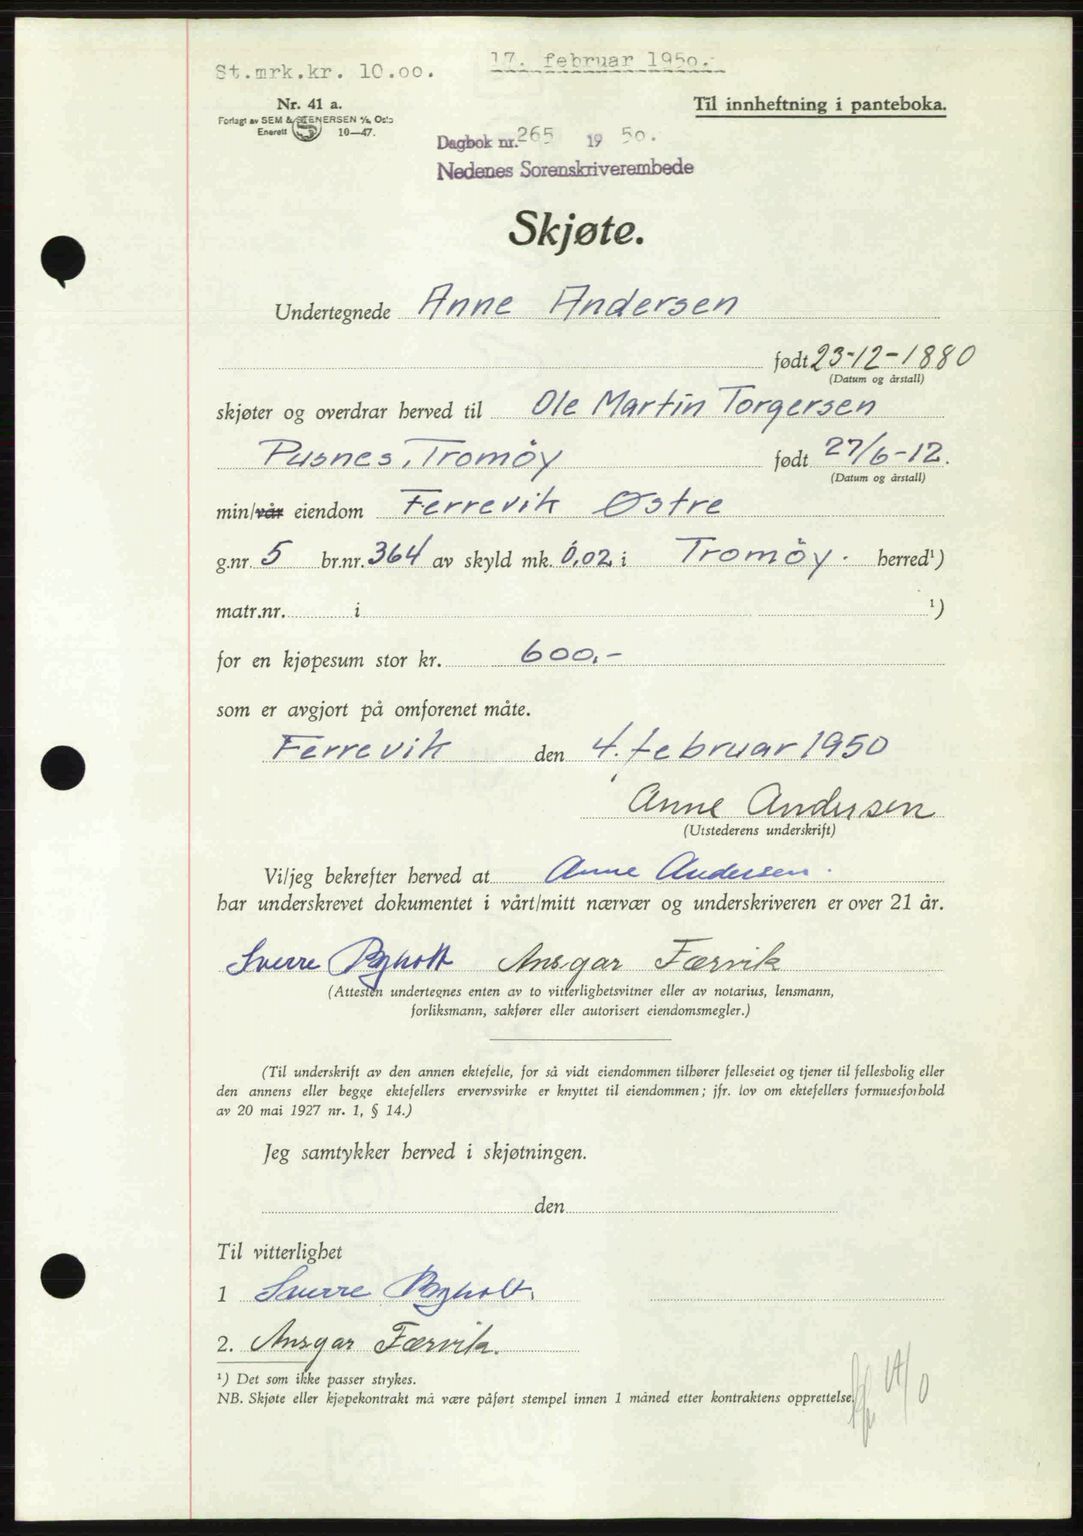 17. februar 1950.
St.mrk.kr. 10.00.
Nr. 41 a.
Forlagt av SEM & STENERSEN A/S, Oslo
Enerett 10—47.
Til innheftning i panteboka.
Dagbok nr. 265 19 50.
Nedenes Sorenskriverembede
Skjøte.
Undertegnede Anne Andersen
født 23-12-1880
(Datum og årstall)
skjøter og overdrar herved til Ole Martin Torgersen
Pusnes, Tromöy født 27/6-12.
(Datum og årstall)
min/vår eiendom Ferrevik Østre
g.nr. 5 br.nr. 364 av skyld mk. 0,02 i Tromöy. herred¹)
matr.nr. i ¹)
for en kjøpesum stor kr. 600,-
som er avgjort på omforenet måte.
Ferrevik den 4. februar 1950
Anne Andersen
(Utstederens underskrift)
Vi/jeg bekrefter herved at Anne Andersen.
har underskrevet dokumentet i vårt/mitt nærvær og underskriveren er over 21 år.
Sverre Bgholt Ansgar Færvik
(Attesten undertegnes enten av to vitterlighetsvitner eller av notarius, lensmann,
forliksmann, sakfører eller autorisert eiendomsmegler.)
(Til underskrift av den annen ektefelle, for så vidt eiendommen tilhører felleseiet og tjener til fellesbolig eller
den annens eller begge ektefellers ervervsvirke er knyttet til eiendommen; jfr. lov om ektefellers formuesforhold
av 20 mai 1927 nr. 1, § 14.)
Jeg samtykker herved i skjøtningen.
den
Til vitterlighet
1 Sverre Bgholt.
2. Ansgar Færvik.
¹) Det som ikke passer strykes.
NB. Skjøte eller kjøpekontrakt må være påført stempel innen 1 måned etter kontraktens opprettelse.